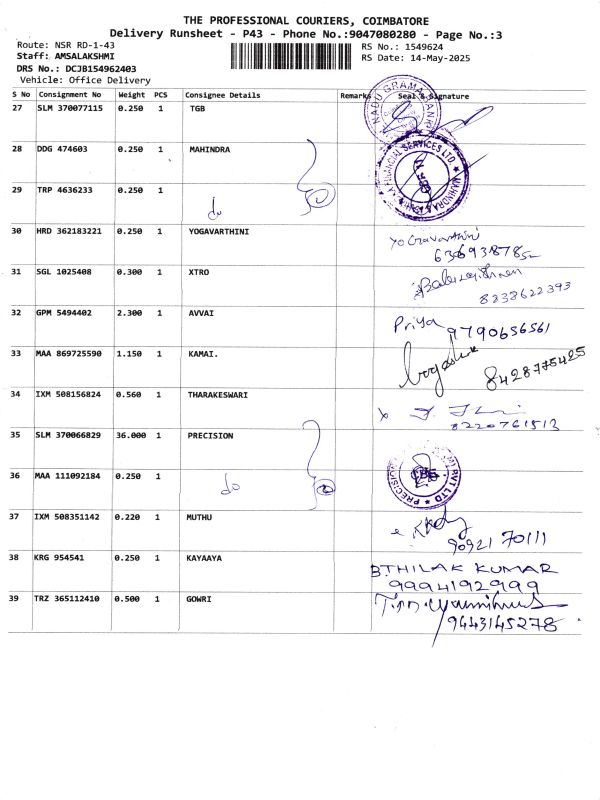 THE PROFESSIONAL COURIERS, COIMBATORE
Delivery Runsheet - P43 - Phone No.:9047080280 - Page No.:3
Route: NSR RD-1-43
RS No.: 1549624
Staff: AMSALAKSHMI
RS Date: 14-May-2025
DRS No.: DCJB154962403
Vehicle: Office Delivery
S No Consignment No Weight PCS Consignee Details Remarks Seal & Signature
27 SLM 370077115 0.250 1 TGB
28 DDG 474603 0.250 1 MAHINDRA
29 TRP 4636233 0.250 1 do
30 HRD 362183221 0.250 1 YOGAVARTHINI Yogavarthini
31 SGL 1025408 0.300 1 XTRO
8838622393
32 GPM 5494402 2.300 1 AVVAI Priya 9790656561
33 MAA 869725590 1.150 1 KAMAI. 8428775425
34 IXM 508156824 0.560 1 THARAKESWARI
8220761513
35 SLM 370066829 36.000 1 PRECISION
36 MAA 111092184 0.250 1 do
37 IXM 508351142 0.220 1 MUTHU
90921 70111
38 KRG 954541 0.250 1 KAYAAYA B.THILAK KUMAR
9994192999
39 TRZ 365112410 0.500 1 GOWRI
9443145278